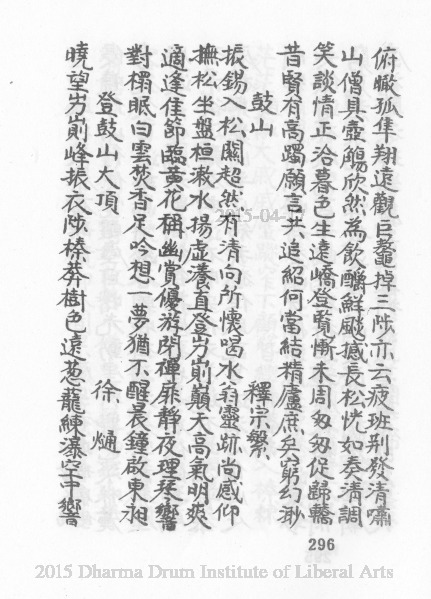 俯瞰孤隼翔遠觀巨鼇掉三陟亦云疲班荆發清嘯
山僧具壺觴欣然為飲釂鮮飈撼長松恍如奏清調
笑談情正洽暮色生遠嶠登覧慚未周匆匆促歸轎
昔賢有高躅願言共追紹何當結精廬庶矣窮幻渺
鼓山　釋宗繁
振錫入松關超然有清向所懷喝水翁靈跡尚感仰
撫松坐盤桓漱水揚虛瀁直登屴崱巔天高氣明爽
適逢佳節臨黃花稱幽賞優游閉禪扉靜夜理琴響
對榻眠白雲焚香足吟想一夢猶不醒晨鐘啟東昶
登鼓山大頂　徐𤊹
曉望屴崱峰振衣陟榛莽樹色遠葱蘢練瀑空中響
296
2015-04-17
2015 Dharma Drum Institute of Liberal Arts